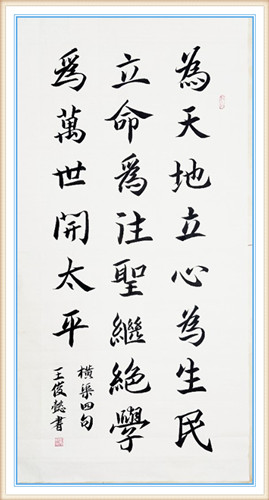 為天地立心為生民
立命爲往聖繼絕學
爲萬世開太平
橫渠四句
王俊懿書